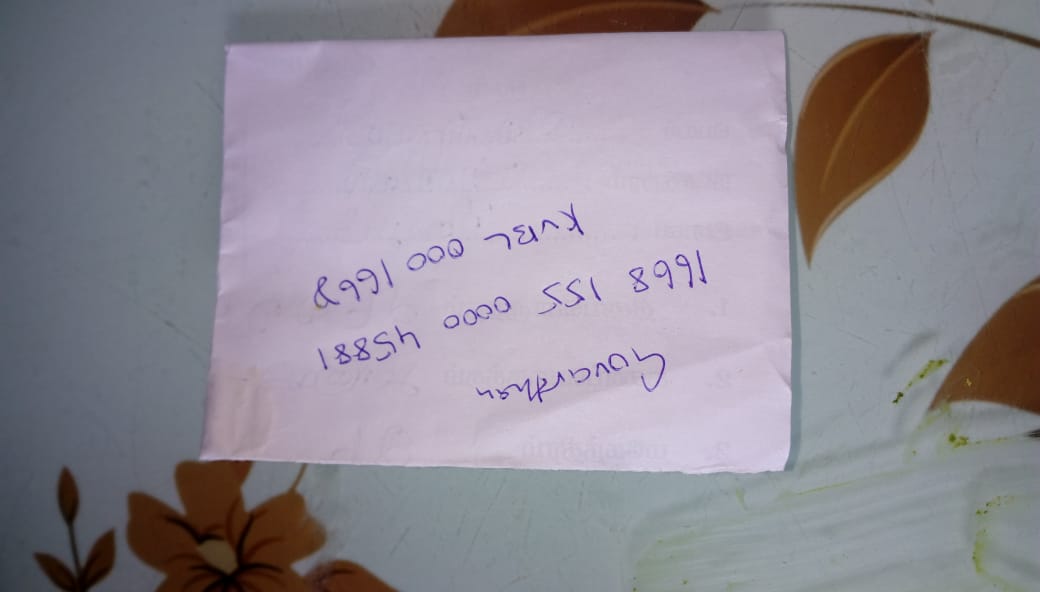 Govardhan
1668 155 0000 45881
KVBL 000 1668